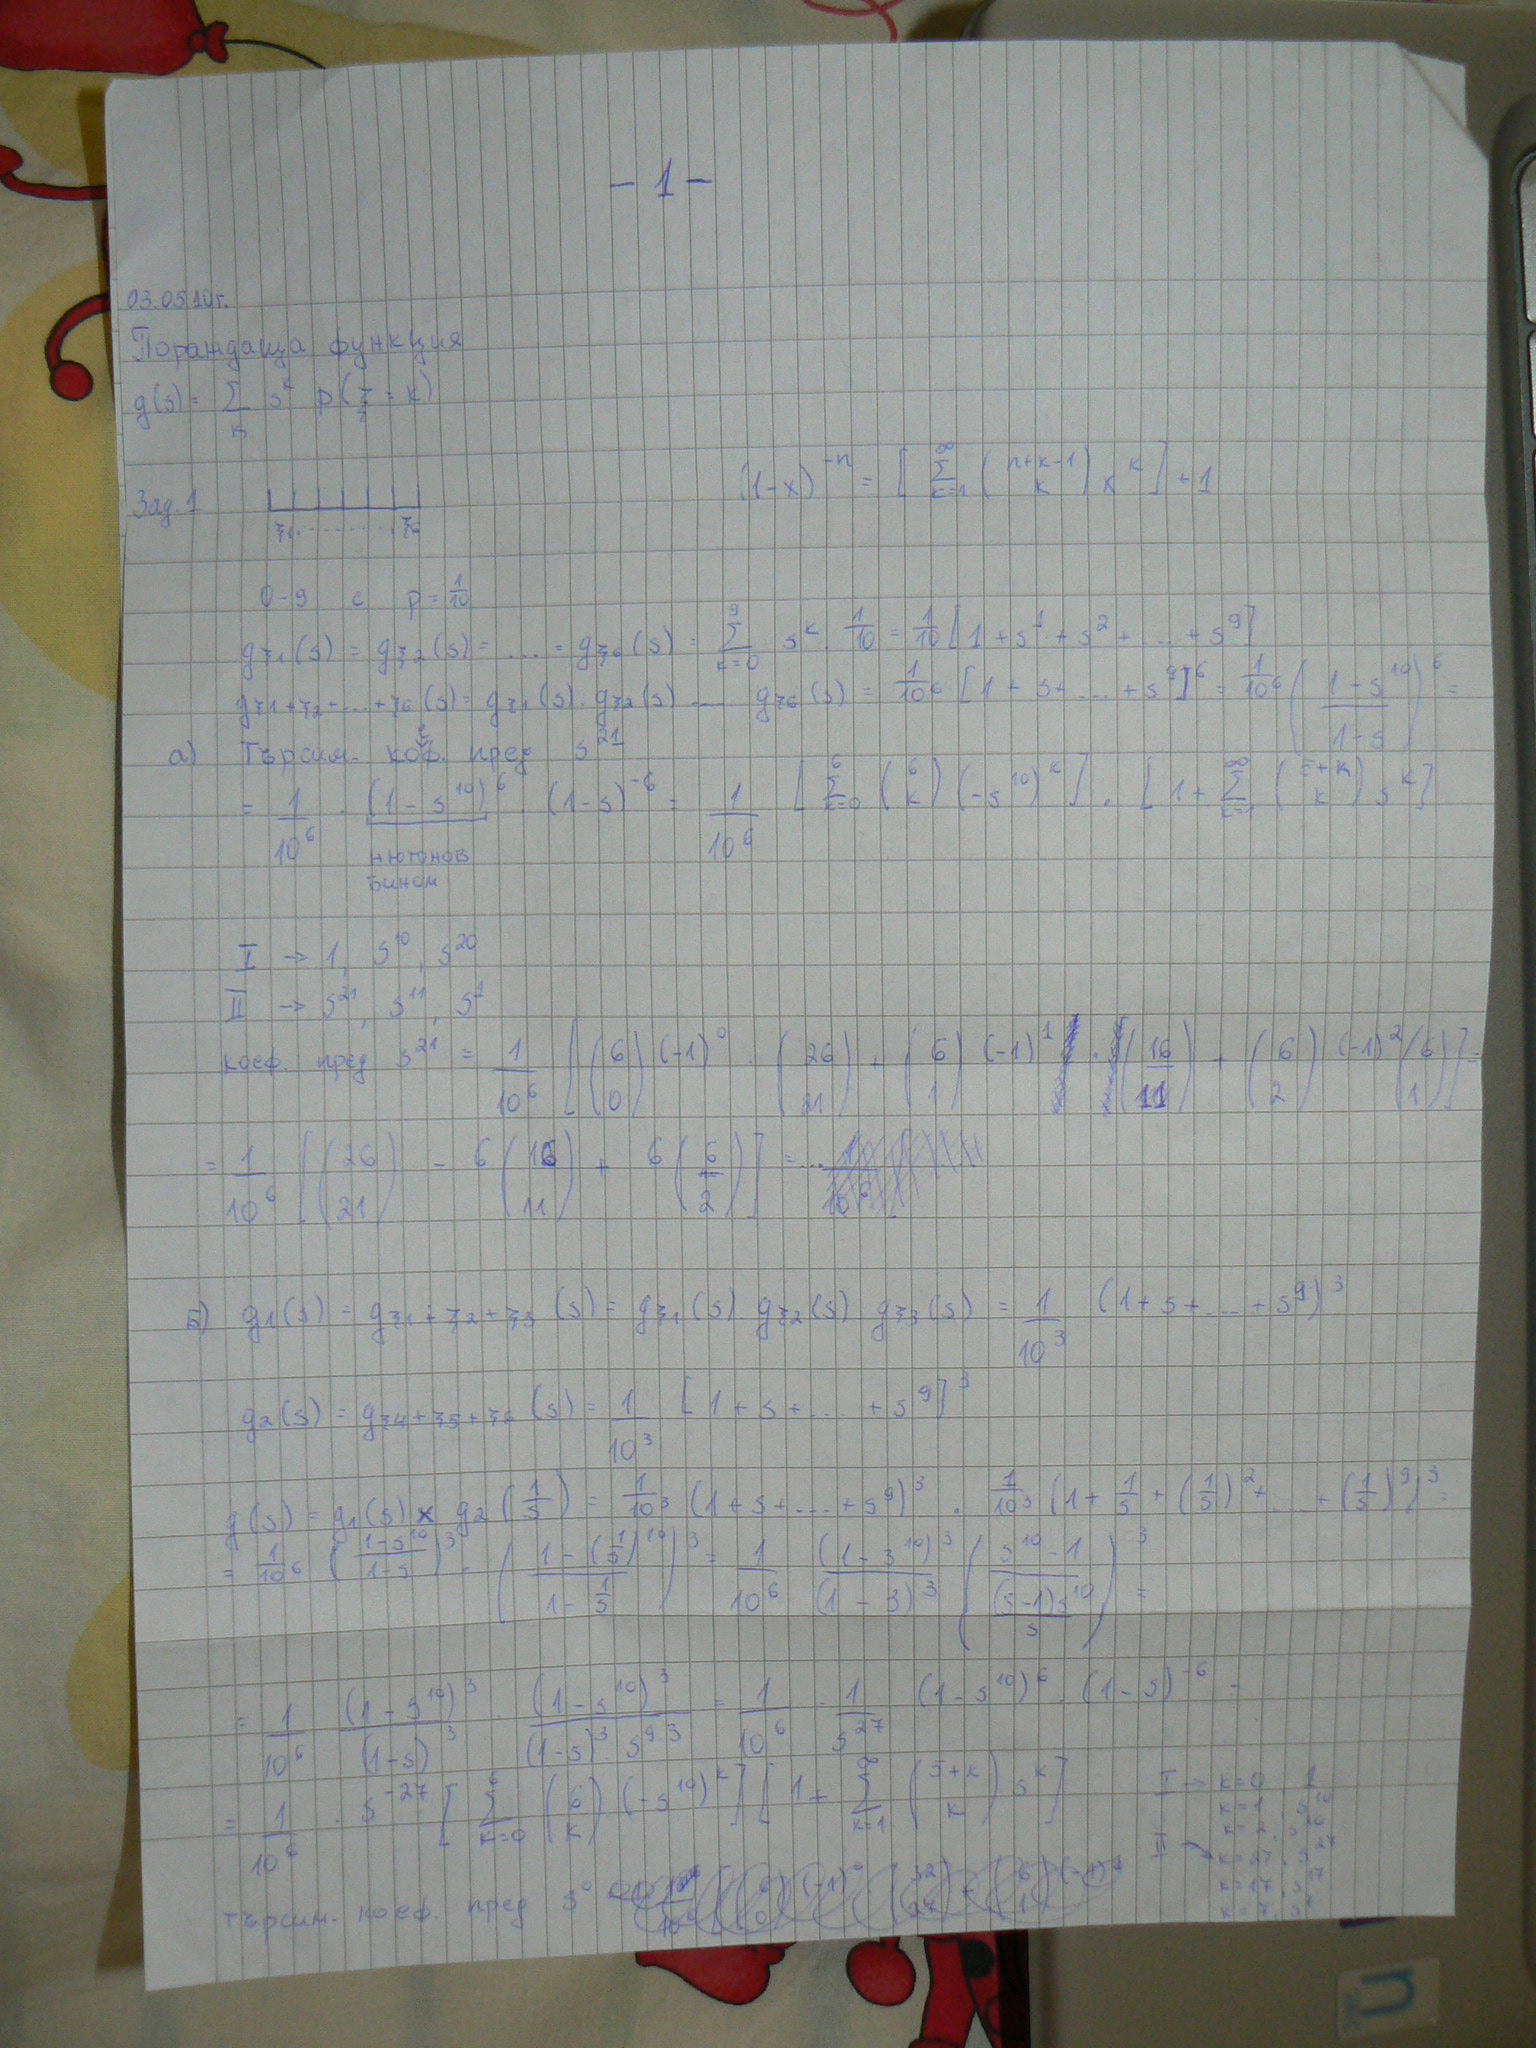 - 1 -
03.05.10г.
Пораждаща функция
g(s) = Σ_k s^k p(ξ = k)
Зад. 1
ξ1 . . . . . . . . ξ6
(1-x)^{-n} = [ Σ_{k=1}^{∞} (n+k-1 \atop k) x^k ] + 1
0-9 с p = 1/10
g_{ξ1}(s) = g_{ξ2}(s) = .... = g_{ξ6}(s) = Σ_{k=0}^{9} s^k . 1/10 = 1/10 [1 + s^1 + s^2 + .... + s^9]
g_{ξ1+ξ2+...+ξ6}(s) = g_{ξ1}(s) . g_{ξ2}(s) .... g_{ξ6}(s) = 1/10^6 [1 + s + .... + s^9]^6 = 1/10^6 ((1-s^{10})/(1-s))^6 =
а) Търсим коеф. пред s^{21}
= 1/10^6 . (1-s^{10})^6 . (1-s)^{-6} = 1/10^6 [ Σ_{k=0}^{6} (6 \atop k) (-s^{10})^k ] . [ 1 + Σ_{k=1}^{∞} (5+k \atop k) s^k ]
нютонов
бином
I → 1, s^{10}, s^{20}
II → s^{21}, s^{11}, s^1
коеф. пред s^{21} = 1/10^6 [ (6 \atop 0) (-1)^0 . (26 \atop 21) + (6 \atop 1) (-1)^1 . (16 \atop 11) + (6 \atop 2) (-1)^2 (6 \atop 1) ] =
= 1/10^6 [ (26 \atop 21) - 6 (16 \atop 11) + 6 (6 \atop 2) ] = ...
Б) g_1(s) = g_{ξ1+ξ2+ξ3}(s) = g_{ξ1}(s) g_{ξ2}(s) g_{ξ3}(s) = 1/10^3 (1 + s + .... + s^9)^3
g_2(s) = g_{ξ4+ξ5+ξ6}(s) = 1/10^3 [1 + s + .... + s^9]^3
g(s) = g_1(s) x g_2(1/s) = 1/10^3 (1 + s + .... + s^9)^3 . 1/10^3 (1 + 1/s + (1/s)^2 + .... + (1/s)^9)^3 =
= 1/10^6 ((1-s^{10})/(1-s))^3 . ((1-(1/s)^{10})/(1-1/s))^3 = 1/10^6 (1-s^{10})^3/(1-s)^3 ((s^{10}-1)/((s-1)s^{10}/s))^3 =
= 1/10^6 (1-s^{10})^3/(1-s)^3 . (1-s^{10})^3/((1-s)^3 . s^{9.3}) = 1/10^6 . 1/s^{27} (1-s^{10})^6 . (1-s)^{-6} =
= 1/10^6 . s^{-27} [ Σ_{k=0}^{6} (6 \atop k) (-s^{10})^k ] [ 1 + Σ_{k=1}^{∞} (5+k \atop k) s^k ]
I → k=0 1
k=1 . s^{10}
k=2 . s^{20}
II → k=27 . s^{27}
k=17 . s^{17}
k=7 . s^7
търсим коеф. пред s^0